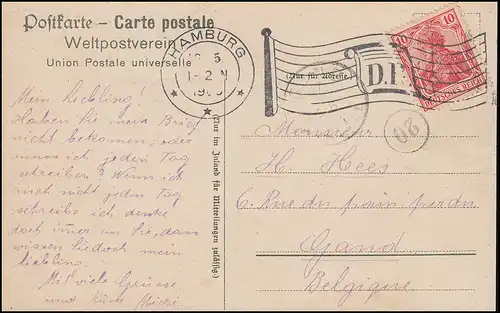 Postkarte – Carte postale
Weltpostverein
Union Postale universelle
HAMBURG
5
1-2 N
D.R.
10 10
DEUTSCHES REICH
(Nur für Adresse)
20
(Nur im Inland für Mitteilungen zulässig)
Mein Liebling!
Haben Sie mein Brief
nicht bekomen, oder
mus ich jeden Tag
schreiben? Wenn ich
auch nicht jeden Tag
schreibe ich denke
doch imer an Sie, dan
wissen Sie doch mein
Liebling.
Mit viele Grüsse
und Küsse Mitzi
Monsieur
H. Hees
6. Rue du pain perdu
Gand
Belgique